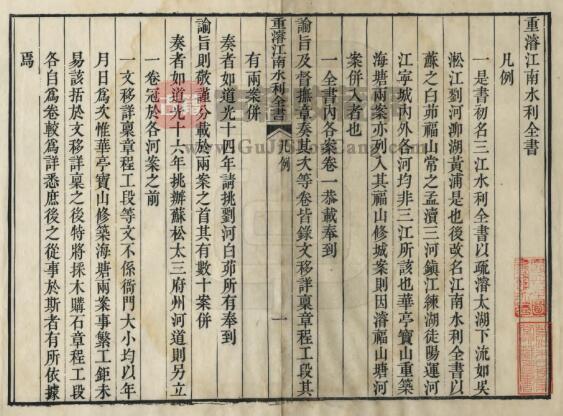 重濬江南水利全書
凡例
一是書初名三江水利全書以疏濬太湖下流如吳
淞江劉河泖湖黃浦是也後改名江南水利全書以
蘇之白茆福山常之孟瀆三河鎭江練湖徒陽運河
江寧城內外各河均非三江所該也華亭寶山重築
海塘兩案亦列入其福山修城案則因濬福山塘河
案併入者也
一全書內各案卷一恭載奉到
諭旨及督撫章奏其次等卷皆錄文移詳稟章程工段其
重濬江南水利全書
凡例
一
有兩案併
奏者如道光十四年請挑劉河白茆所有奉到
諭旨則敬謹分載於兩案之首其有數十案併
奏者如道光十六年挑辦蘇松太三府州河道則另立
一卷冠於各河案之前
一文移詳稟章程工段等文不係衙門大小均以年
月日爲次惟華亭寶山修築海塘兩案事繁工鉅未
易該括於文移詳稟之後特將採木購石章程工段
各自爲卷較爲詳悉庶後之從事於斯者有所依據
焉
www.GuJiShouCang.com